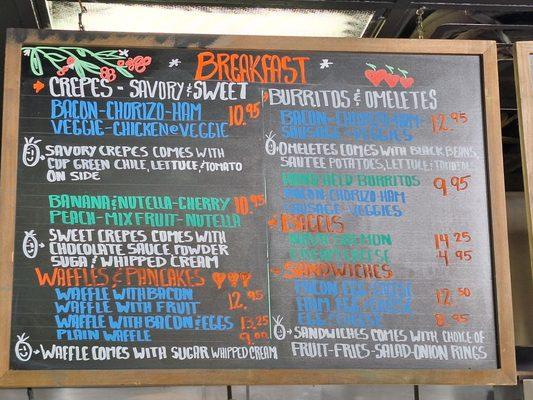 BREAKFAST
CREPES - SAVORY & SWEET
BACON-CHORIZO-HAM
VEGGIE-CHICKEN@VEGGIE
10.95
SAVORY CREPES COMES WITH
CUP GREEN CHILE, LETTUCE & TOMATO
ON SIDE
BANANA & NUTELLA-CHERRY
PEACH-MIX FRUIT-NUTELLA
10.95
SWEET CREPES COMES WITH
CHOCOLATE SAUCE POWDER
SUGA & WHIPPED CREAM
WAFFLES & PANCAKES
WAFFLE WITH BACON
WAFFLE WITH FRUIT
12.95
WAFFLE WITH BACON & EGGS 13.25
PLAIN WAFFLE 9.00
WAFFLE COMES WITH SUGAR WHIPPED CREAM
BURRITOS & OMELETES
BACON-CHORIZO-HAM
SAUSAGE-VEGGIES
12.95
OMELETES COMES WITH BLACK BEANS,
SAUTEE POTATOES, LETTUCE & TOMATOES
HAND HELD BURRITOS
BACON-CHORIZO-HAM
SAUSAGE-VEGGIES
9.95
BAGELS
SALMON 14.25
CREAM CHEESE 4.95
SANDWICHES
BACON EGG & CHEESE
HAM EGG & CHEESE
12.50
EGG & CHEESE 8.95
SANDWICHES COMES WITH CHOICE OF
FRUIT-FRIES-SALAD-ONION RINGS